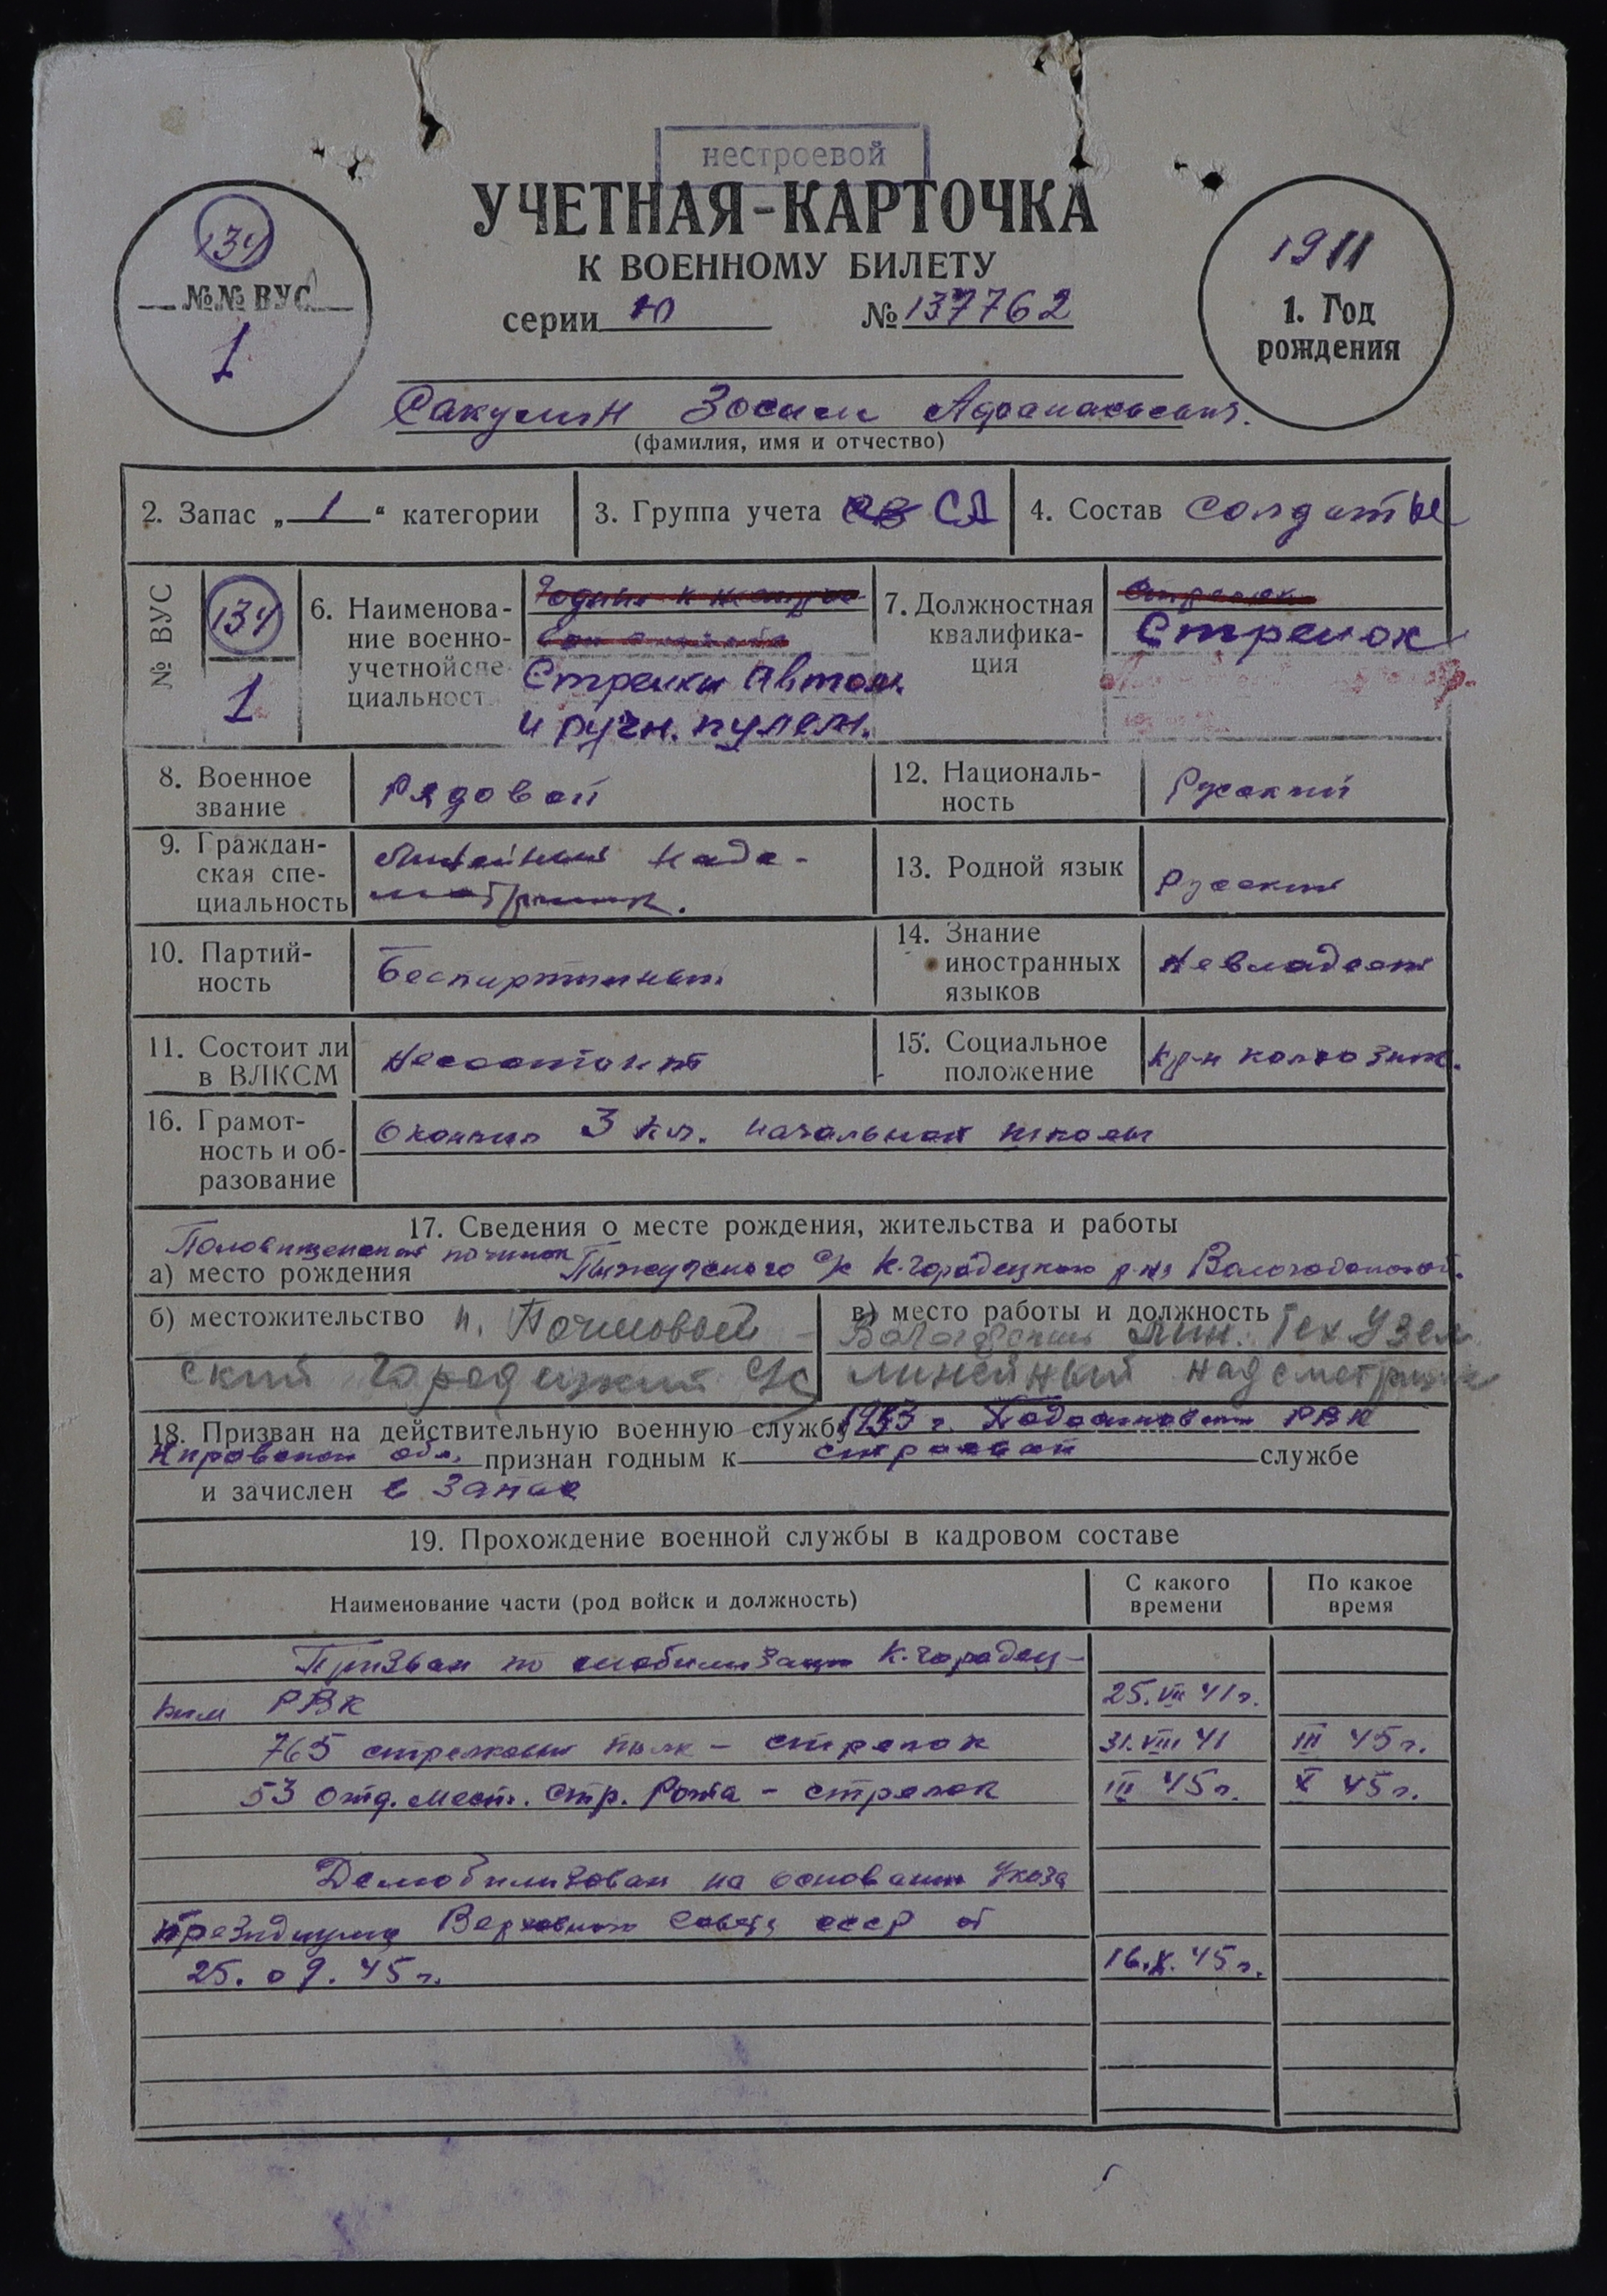 нестроевой
УЧЕТНАЯ-КАРТОЧКА
К ВОЕННОМУ БИЛЕТУ
серии Ю № 137762
134
№№ ВУС
1
1911
1. Год
рождения
Сакулин Зосим Афанасьевич.
(фамилия, имя и отчество)
2. Запас „1“ категории
3. Группа учета СА
4. Состав солдаты
№ ВУС
134
1
6. Наименова-
ние военно-
учетной спе
циальност
Стрелки Автом.
и ручн. пулем.
7. Должностная
квалифика-
ция
Стрелок
8. Военное
звание
Рядовой
12. Националь-
ность
Русский
9. Граждан-
ская спе-
циальность
Линейный надс-
мотрщик.
13. Родной язык
Русский
10. Партий-
ность
Беспартийный
14. Знание
иностранных
языков
Невладеет
11. Состоит ли
в ВЛКСМ
Несостоит
15. Социальное
положение
кр-н колхозник.
16. Грамот-
ность и об-
разование
Окончил 3 кл. начальной школы
17. Сведения о месте рождения, жительства и работы
починок
а) место рождения с/с К-Городецкого р-на Вологодской.
б) местожительство п. Почтовый
ский Городецкий с/с
в) место работы и должность
Вологодский Лин. Тех. Узел
линейный надсмотрщик
18. Призван на действительную военную службу 1933 г. Подосиновским РВК
Кировской обл. признан годным к строевой службе
и зачислен в запас
19. Прохождение военной службы в кадровом составе
Наименование части (род войск и должность)
С какого
времени
По какое
время
Призван по мобилизации К-городец-
ким РВК 25.VII 41 г.
765 стрелковый полк – стрелок 31.VIII 41 III 45 г.
53 отд. мест. стр. рота – стрелок III 45 г. X 45 г.
Демобилизован на основании Указа
президиума Верховного Совета СССР от
25.09.45 г. 16.X.45 г.